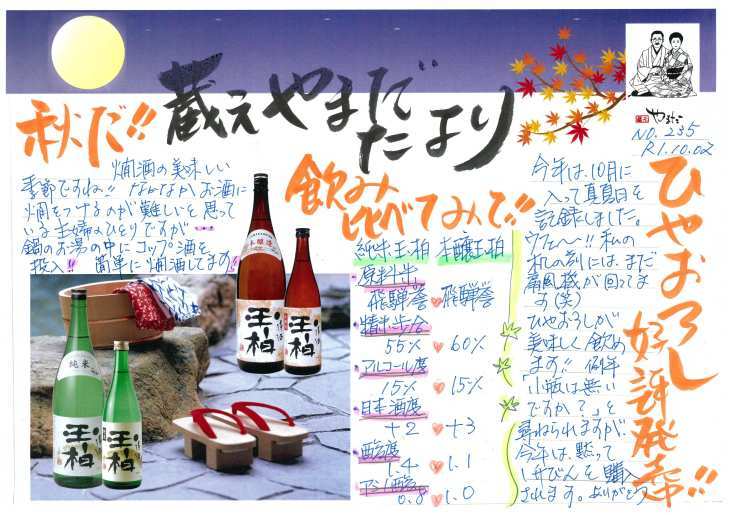 蔵元やまだ
たより
やまだ
NO.235
R1.10.02
秋だ!!
燗酒の美味しい
季節ですね!! なかなかお酒に
燗をつけるのが難しいと思って
いる主婦のひとりですが
鍋のお湯の中にコップ酒を
投入!! 簡単に燗酒してます!!
飲み
比べてみて!!
純米玉柏 本醸玉柏
原料米
飛騨誉 飛騨誉
精米歩合
55% 60%
アルコール度
15% 15%
日本酒度
+2 +3
酸度
1.4 1.1
アミノ酸度
0.8 1.0
ひやおろし
好評発売中!!
今年は、10月に
入って真夏日を
記録しました。
ウァ〜〜!! 私の
机の前には、まだ
扇風機が回ってま
す(笑)
ひやおろしが
美味しく飲め
ます!! 例年
「小瓶は無い
ですか?」と
尋ねられますが、
今年は、黙って
一升びんを購入
されます。ありがとう
本醸造
玉柏
玉柏
純米
玉柏
玉柏